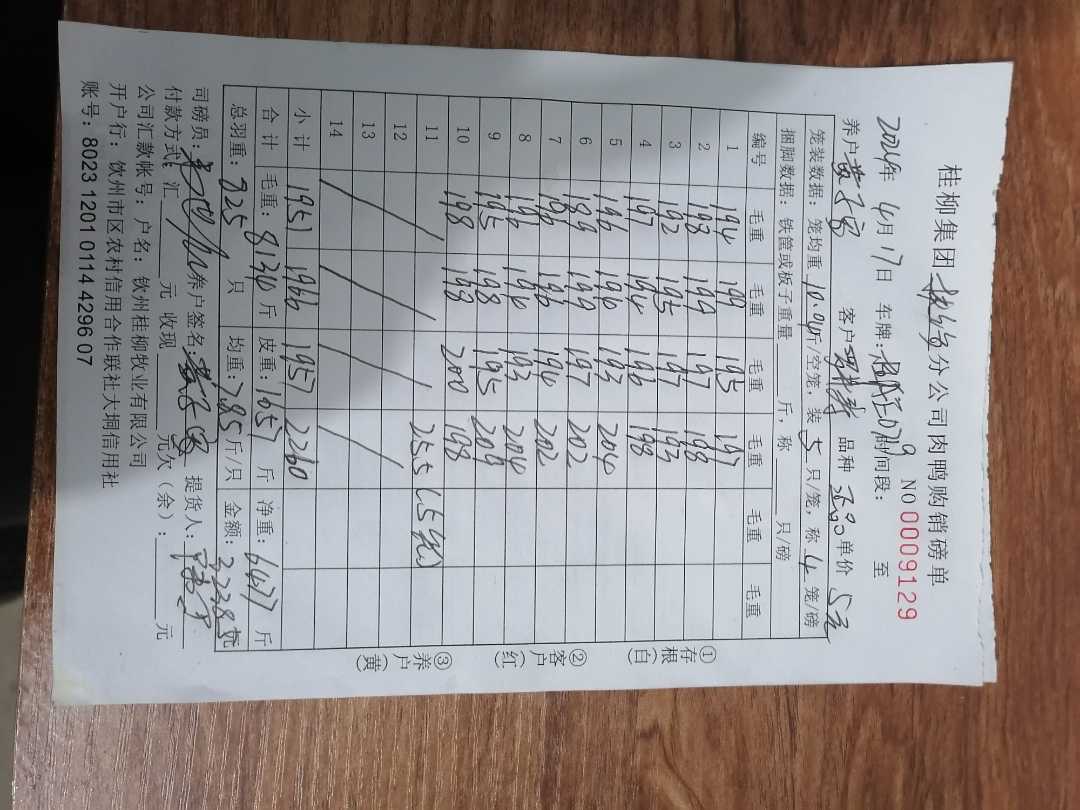 桂柳集团 分公司肉鸭购销磅单
NO 00009129
2024年 4月17日 车牌: 时间段: 至
养户 黄子富 客户 品种 单价 5元
笼装数据:笼均重 10.04斤/空笼,装 5 只/笼,称 4 笼/磅
捆脚数据:铁筐或板子重量 斤,称 只/磅
编号 毛重 毛重 毛重 毛重 毛重 毛重
1 194 199 195 197
2 198 199 197 198
3 192 195 197 193
4 197 194 196 198
5 196 196 193 204
6 189 199 197 202
7 196 196 194 202
8 196 196 193 204
9 195 198 195 209
10 198 198 200 198
11 255 (5笼)
12
13
14
小计 1951 1966 1957 2260
合计 毛重:8134 斤 皮重:1657 斤 净重:6477 斤
总羽重:825 只 均重:7.85 斤/只 金额:32385元
司磅员: 养户签名:黄子富 提货人:
付款方式:汇 元 收现 元欠(余): 元
公司汇款帐号:户名:钦州桂柳牧业有限公司
开户行:钦州市区农村信用合作联社大桐信用社
账号:8023 1201 0114 4296 07
①存根(白)
②客户(红)
③养户(黄)